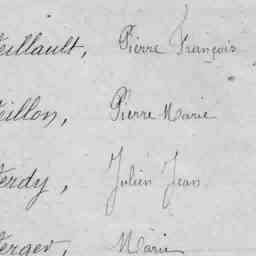 eillault, Pierre François
eillon, Pierre Marie
erdy, Julien Jean
erger, Marie